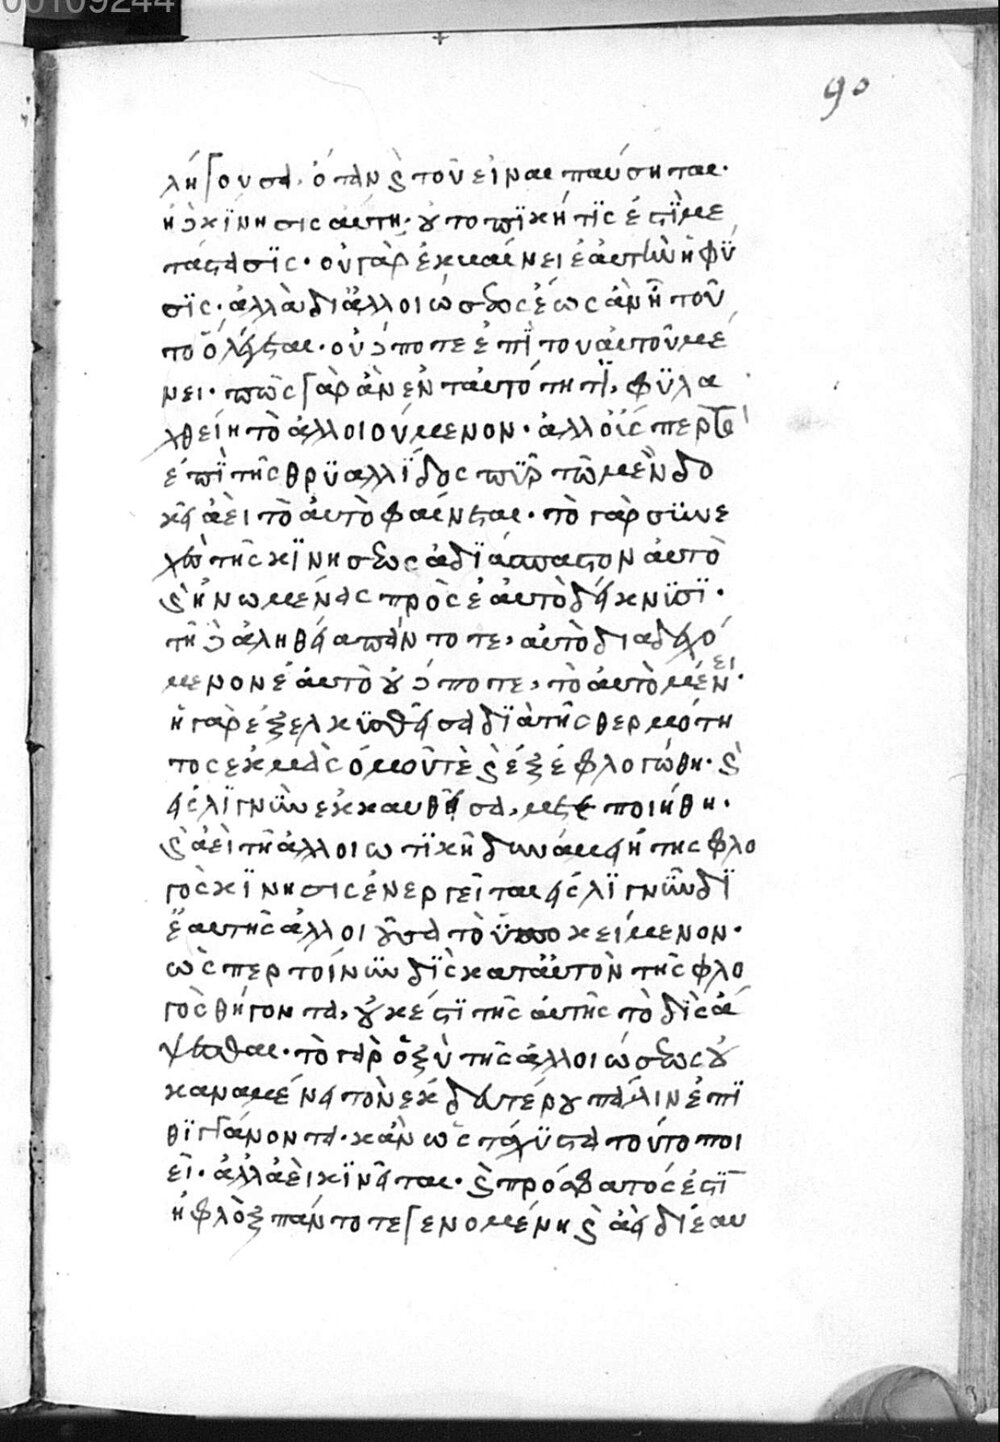 90
λήγουσα, ὅταν καὶ τοῦ εἶναι παύσηται.
ἡ δὲ κίνησις αὕτη, οὐ τοπική τίς ἐστι με
τάστασις· οὐ γὰρ ἐκβαίνει ἑαυτὴν ἡ φύ
σις· ἀλλὰ δι᾽ ἀλλοιώσεως ἕως ἂν ᾖ τοῦ
το ὃ λέγεται· οὐδέποτε ἐπὶ τοῦ αὐτοῦ μέ
νει· πῶς γὰρ ἂν ἐν ταυτότητι, φυλα
χθείη τὸ ἀλλοιούμενον· ἀλλ᾽ ὥσπερ τὸ
ἐπὶ τῆς θρυαλλίδος πῦρ τῷ μὲν δο
κεῖν ἀεὶ τὸ αὐτὸ φαίνεται· τὸ γὰρ συνε
χὲς τῆς κινήσεως ἀδιάσπαστον αὐτὸ
καὶ ἡνωμένως πρὸς ἑαυτὸ δείκνυσι·
τῇ δὲ ἀληθείᾳ πάντοτε, αὐτὸ διαδεχό
μενον ἑαυτὸ οὐδέποτε, τὸ αὐτὸ μένει·
ἡ γὰρ ἐξελκυσθεῖσα διὰ τῆς θερμότη
τος ἰκμὰς ὁμοῦ τε καὶ ἐξεφλογώθη· καὶ
εἰς λιγνὺν ἐκκαυθεῖσα, μετεποιήθη·
καὶ ἀεὶ τῇ ἀλλοιωτικῇ δυνάμει ἡ τῆς φλο
γὸς κίνησις ἐνεργεῖται εἰς λιγνὺν δι᾽
ἑαυτῆς ἀλλοιοῦσα τὸ ὑποκείμενον·
ὥσπερ τοίνυν δὶς κατὰ ταὐτὸν τῆς φλο
γὸς θίγοντα, οὐκ ἔστι τῆς αὐτῆς τὸ δὶς ἅ
ψασθαι· τὸ γὰρ ὀξὺ τῆς ἀλλοιώσεως οὐ
κ ἀναμένει τὸν ἐκ δευτέρου πάλιν ἐπι
θιγγάνοντα· κἂν ὡς τάχιστα τοῦτο ποι
εῖ· ἀλλ᾽ ἀεὶ κινεῖται· καὶ πρόσφατός ἐστι
ἡ φλὸξ πάντοτε γενομένη καὶ ἀεὶ διεαυ